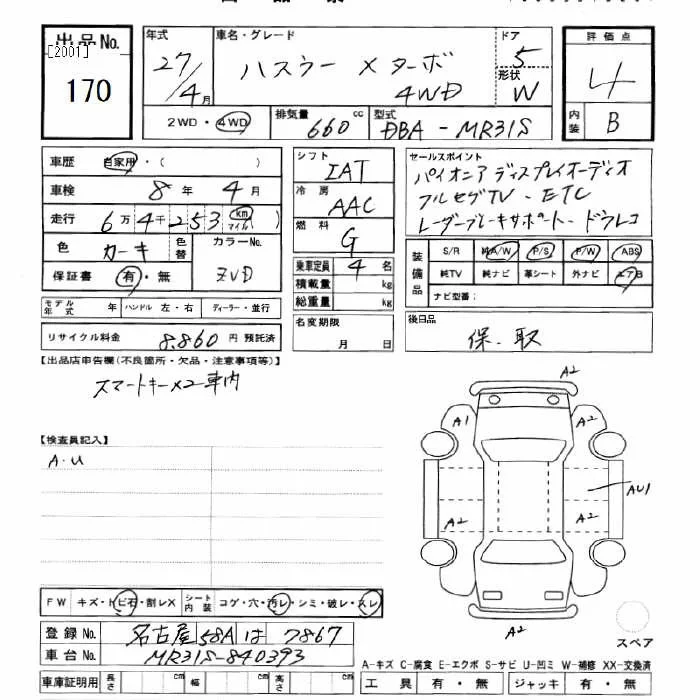 出品No.
[2001]
170
年式
27/4月
車名・グレード
ハスラー Xターボ
4WD
ドア
5
形状
W
評価点
4
内装
B
2WD・4WD
排気量
660 cc
型式
DBA-MR31S
車歴 自家用・( )
車検 8年 4月
走行 6万4千253 km マイル ( )
色 カーキ 色替
カラーNo.
ZVD
保証書 有・無
モデル年式 年 ハンドル 左・右 ディーラー・並行
リサイクル料金 8,860 円 預託済
シフト
IAT
冷房
AAC
燃料
G
乗車定員 4 名
積載量 kg
総重量 kg
名変期限
月 日
セールスポイント
パイオニア ディスプレイオーディオ
フルセグTV・ETC
レーダーブレーキサポート・ドラレコ
装備品
S/R 純A/W P/S P/W ABS
純TV 純ナビ 革シート 外ナビ エアB
ナビ型番:
後日品
保・取
【出品店申告欄(不良箇所・欠品・注意事項等)】
スマートキー×2車内
【検査員記入】
A・U
A2
A1
A2
AU1
A2
A2
A2
スペア
FW キズ・トビ石・割レX シート内装 コゲ・穴・汚レ・シミ・破レ・スレ
登録No. 名古屋 58A は 7867
車台No. MR31S-840393
車庫証明用 長さ cm 幅 cm 高さ cm
A-キズ C-腐食 E-エクボ S-サビ U-凹ミ W-補修 XX-交換済
工具 有・無 ジャッキ 有・無